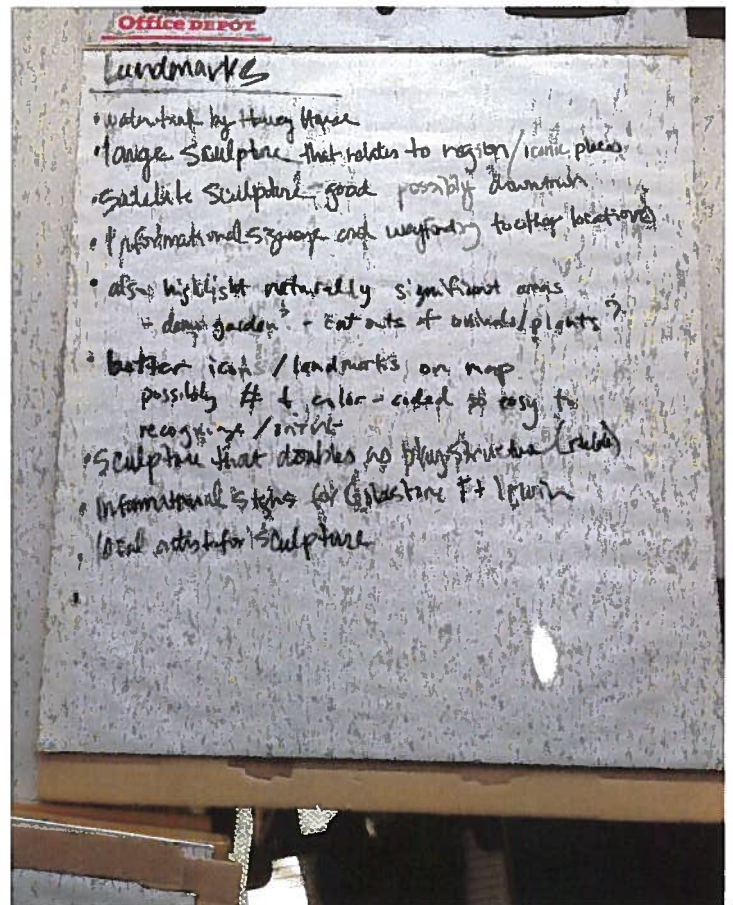 Office DEPOT
Landmarks
• water tank by Harvey House
• large sculpture that relates to region/iconic places
• Satellite Sculpture - good possibly downtown
• Informational signage and wayfinding to other locations
• also highlight naturally significant areas
- garden - cut outs of animals/plants
• better icons/landmarks on map
possibly # & color-coded so easy to
recognize /
• Sculpture that doubles as play structure
• Informational signs for Goldstone Ft Irwin
• local artist for sculpture